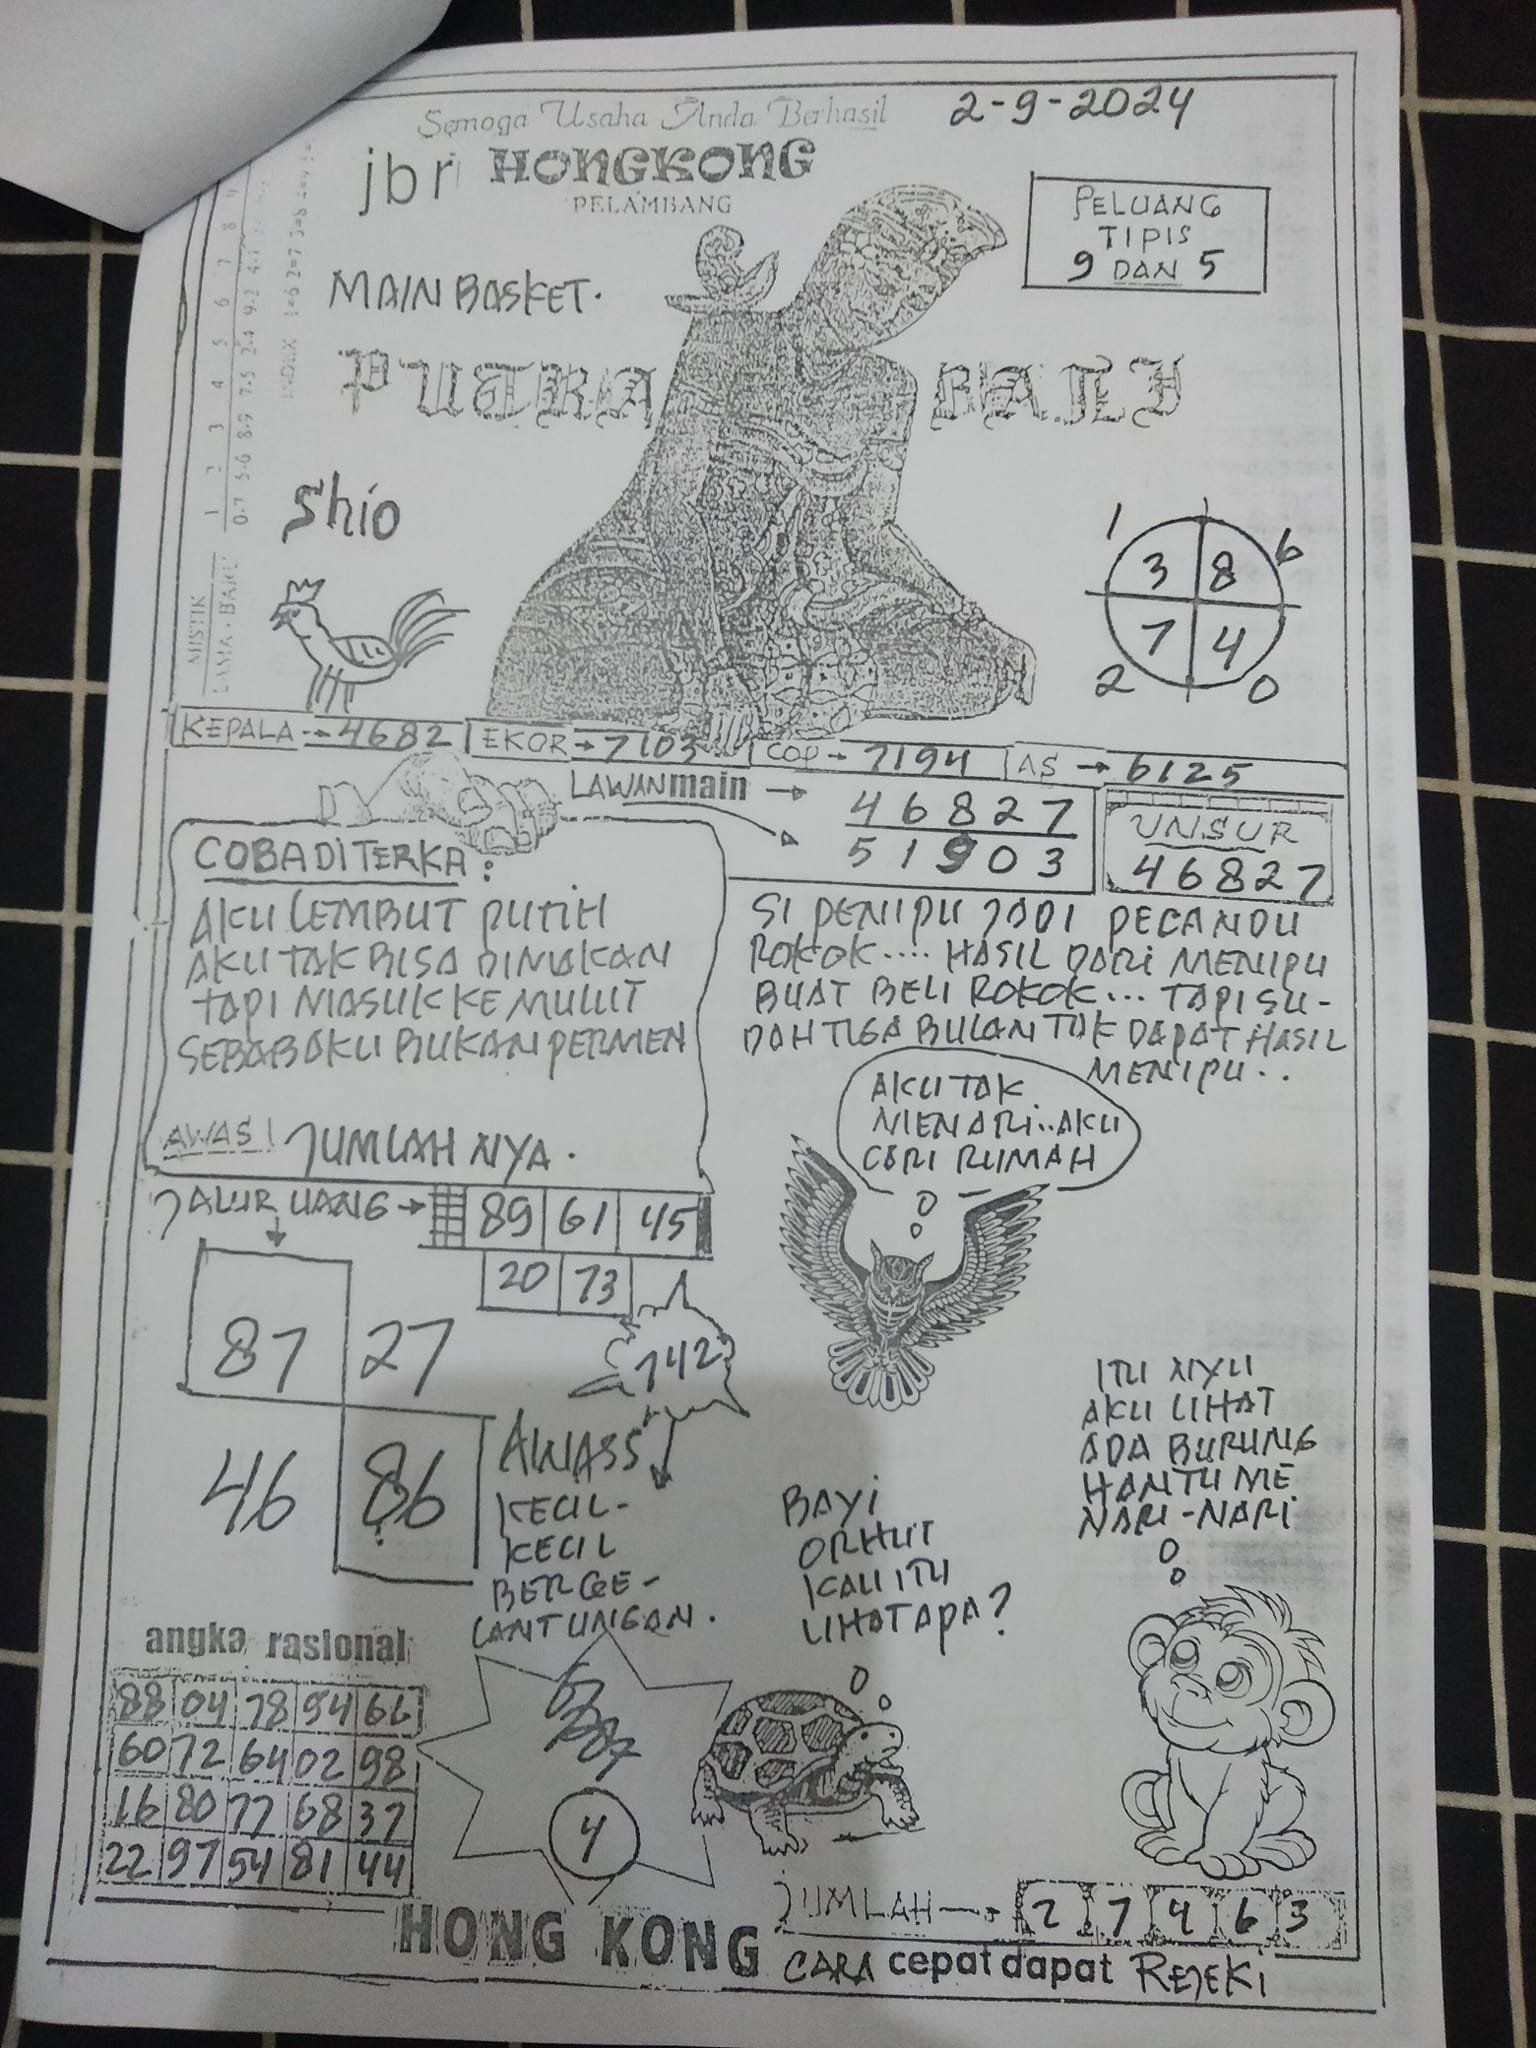 Semoga Usaha Anda Berhasil
2-9-2024
jbr HONGKONG
PELAMBANG
PELUANG
TIPIS
9 DAN 5
MAIN BASKET.
PUTRA BALI
Shio
1 6
3 8
7 4
2 0
MISTIK
LAMA - BARU
INDEX
KEPALA → 4682
EKOR → 7103
COP → 7194
AS → 6125
LAWAN main →
46827
51903
UNSUR
46827
COBA DI TERKA :
AKU LEMBUT PUTIH
AKU TAK BISA DIMAKAN
TAPI MASUK KE MULUT
SEBAB AKU BUKAN PERMEN
AWAS! JUMLAH NYA.
SI PENIPU JADI PECANDU
ROKOK.... HASIL DARI MENIPU
BUAT BELI ROKOK... TAPI SU-
DAH TIGA BULAN TAK DAPAT HASIL
MENIPU..
AKU TAK
MENARI..AKU
CARI RUMAH
JALUR UANG → 89 61 45
20 73
87 27
46 86
742
AWASS
KECIL-
KECIL
BERGE-
LANTUNGAN.
BAYI
ORHUT
KALI ITU
LIHAT APA?
ITU NYU
AKU LIHAT
ADA BURUNG
HANTU ME
NARI-NARI
angka rasional
88 04 78 94 66
60 72 64 02 98
16 80 77 68 37
22 97 54 81 44
4
JUMLAH → 2 7 4 6 3
HONG KONG
CARA cepat dapat REJEKI